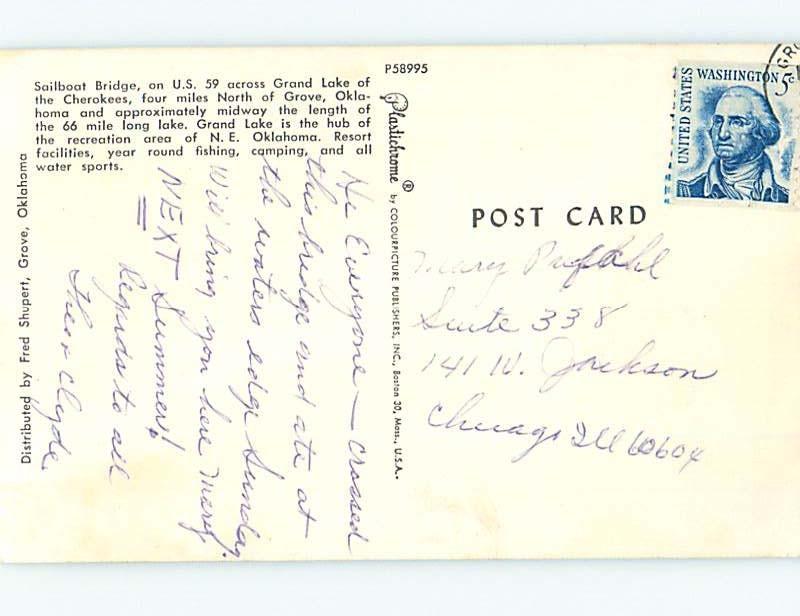 P58995
Sailboat Bridge, on U.S. 59 across Grand Lake of
the Cherokees, four miles North of Grove, Okla-
homa and approximately midway the length of
the 66 mile long lake. Grand Lake is the hub of
the recreation area of N. E. Oklahoma. Resort
facilities, year round fishing, camping, and all
water sports.
Distributed by Fred Shupert, Grove, Oklahoma
Hi Everyone — Crossed
this bridge and ate at
the waters edge Sunday.
Will bring you here Mary
NEXT Summer!
Regards to all
Clyde
Plastichrome ® by COLOURPICTURE PUBLISHERS, INC., Boston 30, Mass., U.S.A.
UNITED STATES
WASHINGTON 5c
GRO
POST CARD
Mary
Suite 338
141 W. Jackson
Chicago Ill 60604